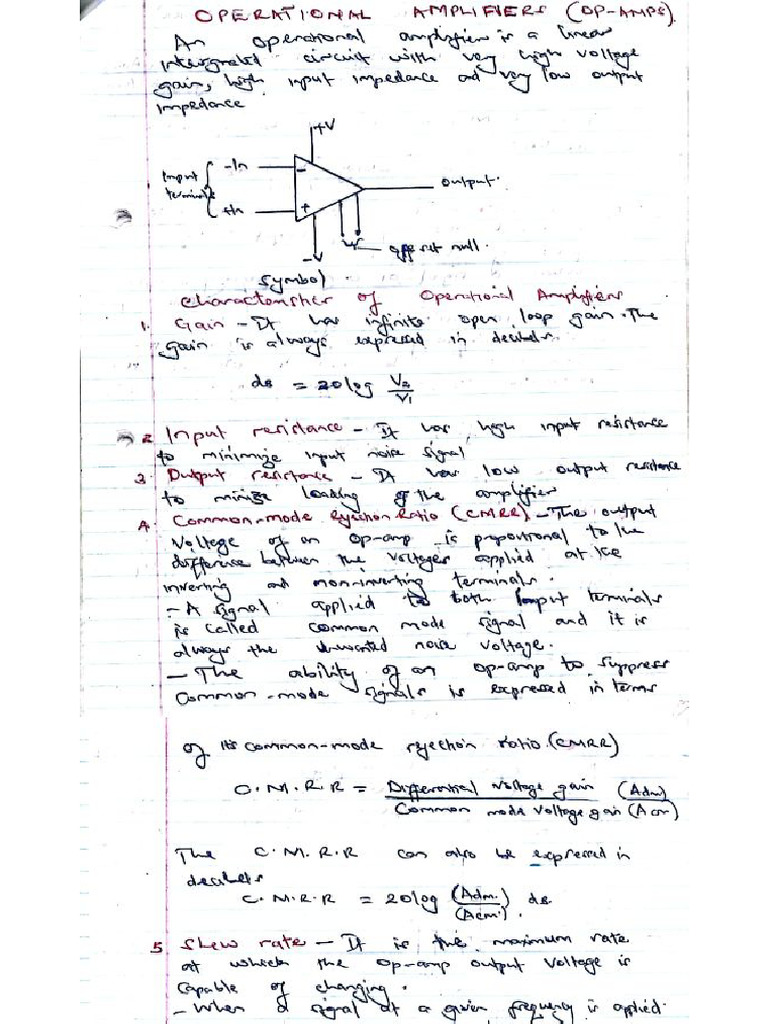 OPERATIONAL AMPLIFIERS (OP-AMPS)
An operational amplifier is a linear
integrated circuit with very high voltage
gain, high input impedance and very low output
impedance
+V
Input
terminals
-In
-
Output.
+In
+
offset null.
-V
Symbol.
Characteristics of Operational Amplifiers
1. Gain - It has infinite open loop gain. The
gain is always expressed in decibels.
dB = 20log V2/V1
2. Input resistance - It has high input resistance
to minimize input noise signal
3. Output resistance - It has low output resistance
to minimize loading of the amplifier
4. Common-mode Rejection Ratio (CMRR) - The output
voltage of an op-amp is proportional to the
difference between the voltages applied at the
inverting and non-inverting terminals.
- A signal applied to both input terminals
is called common mode signal and it is
always the unwanted noise voltage.
- The ability of an op-amp to suppress
common-mode signals is expressed in terms
of its common-mode rejection ratio (CMRR)
C.M.R.R = Differential voltage gain (Adm)
Common mode voltage gain (Acm)
The C.M.R.R can also be expressed in
decibels
C.M.R.R = 20log (Adm.)/(Acm.) dB.
5 Slew rate - It is the maximum rate
at which the op-amp output voltage is
capable of changing.
- When a signal at a given frequency is applied.